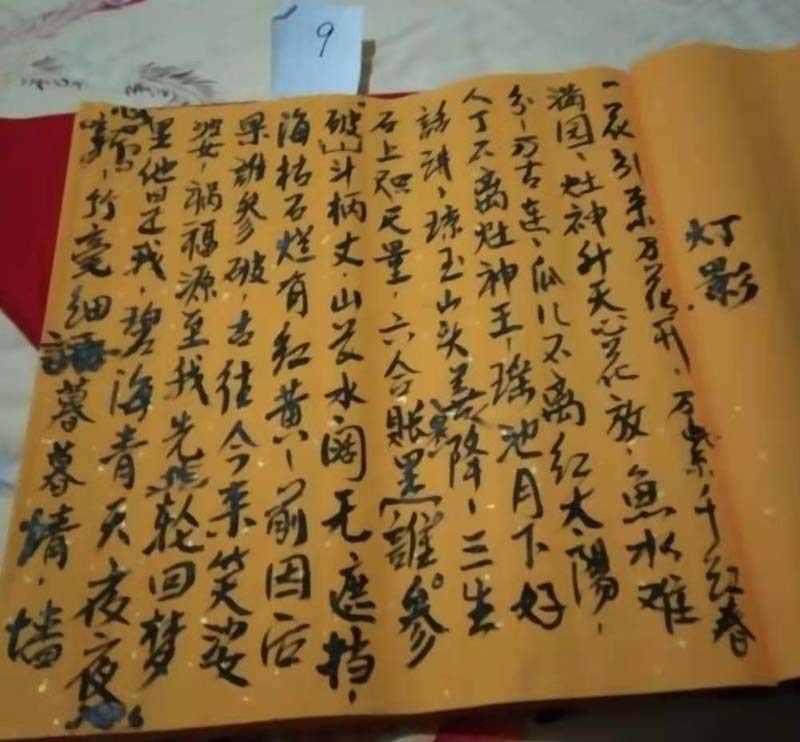 9
灯影
一花引来万花开，万紫千红春
满园，灶神升天心花放，鱼水难
分，万古连，瓜儿不离红太阳，
人丁不离灶神王，瑶池月下好
話讲，琼玉山头降，三生
石上天量，六合賬誰參
破，斗柄丈，山水阔无遮挡，
海枯石烂有红黄，前因后
果誰参破，古往今来笑娑
婆，祸福源至我先轮回梦
里他日是我，碧海青天夜夜
竹亳细語暮暮情，墙